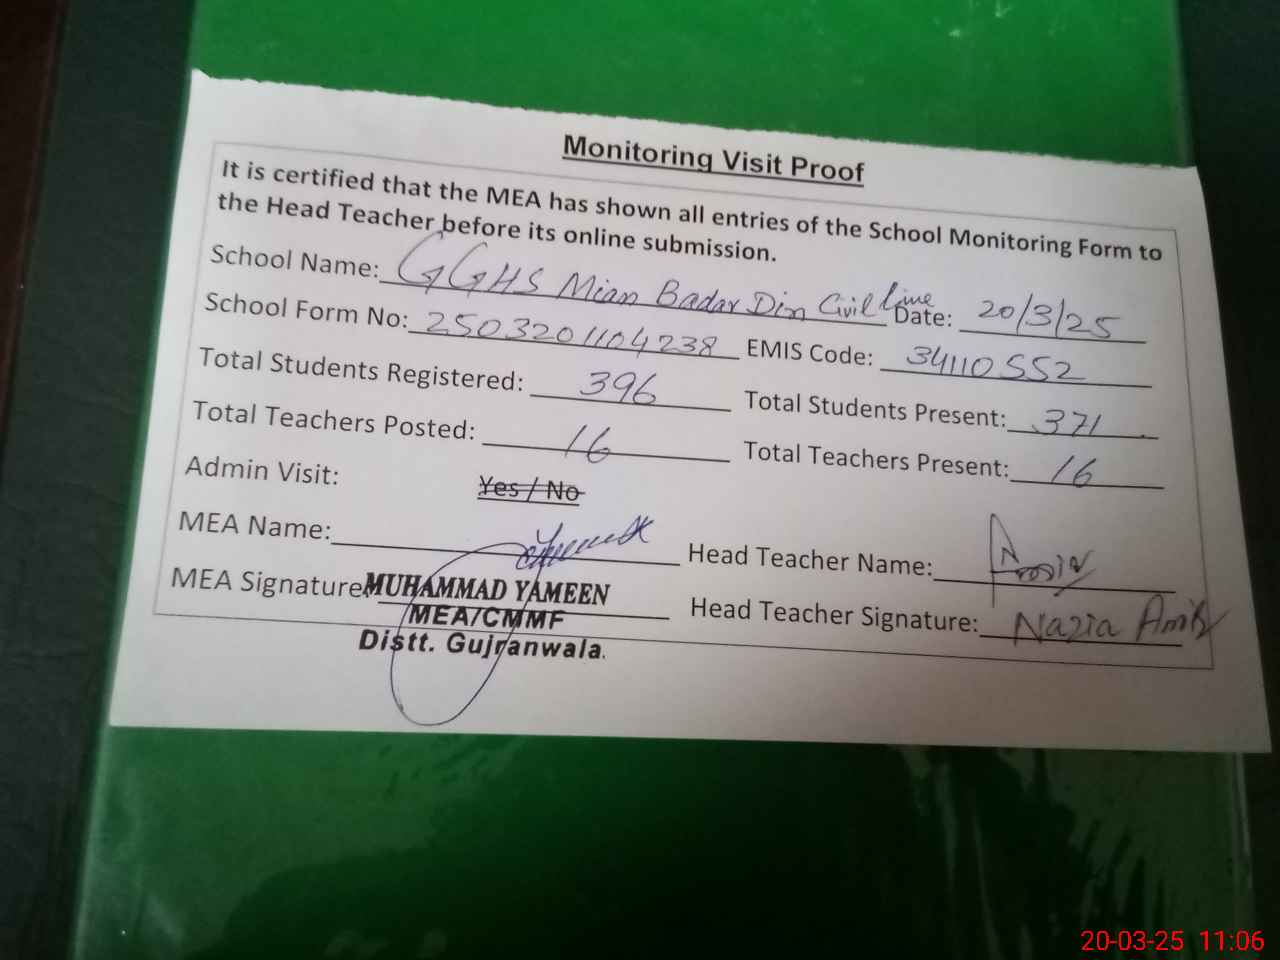 Monitoring Visit Proof
It is certified that the MEA has shown all entries of the School Monitoring Form to
the Head Teacher before its online submission.
School Name: GGHS Mian Badar Din Civil line Date: 20/3/25
School Form No: 2503201104238 EMIS Code: 34110552
Total Students Registered: 396 Total Students Present: 371
Total Teachers Posted: 16 Total Teachers Present: 16
Admin Visit: Yes / No
MEA Name: Head Teacher Name:
MEA Signature MUHAMMAD YAMEEN Head Teacher Signature: Nazia
MEA/CMMF
Distt. Gujranwala.
20-03-25 11:06